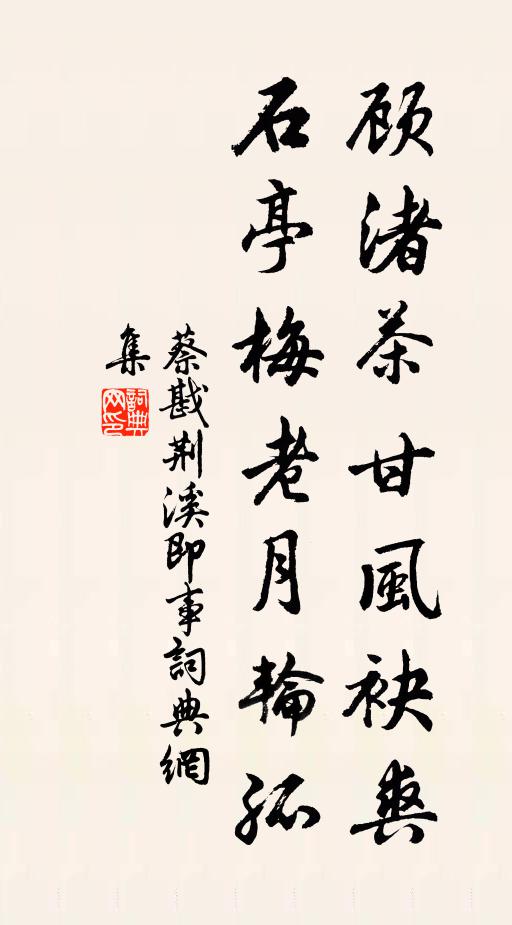 顧渚茶甘風袂爽
石亭梅老月輪孤
蔡戡荆溪即事詞典網
集
詞典网印